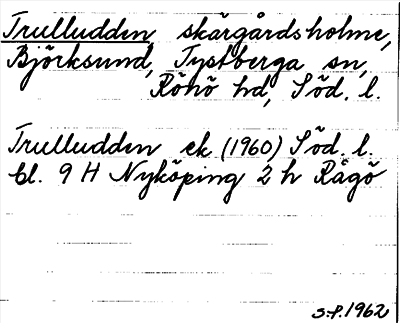 Trulludden, skärgårdsholme,
Björksund, Tystberga sn,
Rönö hd, Söd. l.
Trulludden ek (1960) Söd. l.
bl. 9 H Nyköping 2 h Rågö
S.P. 1962